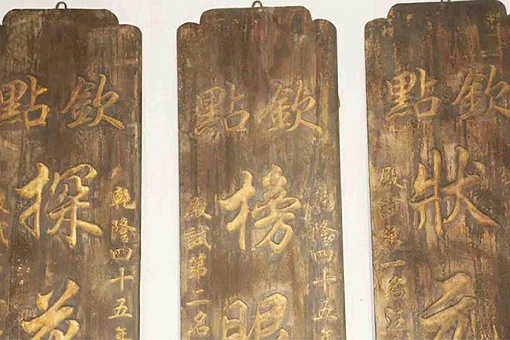 欽點
狀元
殿試第一名汪
欽點
榜眼
乾隆四十五年
殿試第二名
欽點
探花
乾隆四十五年